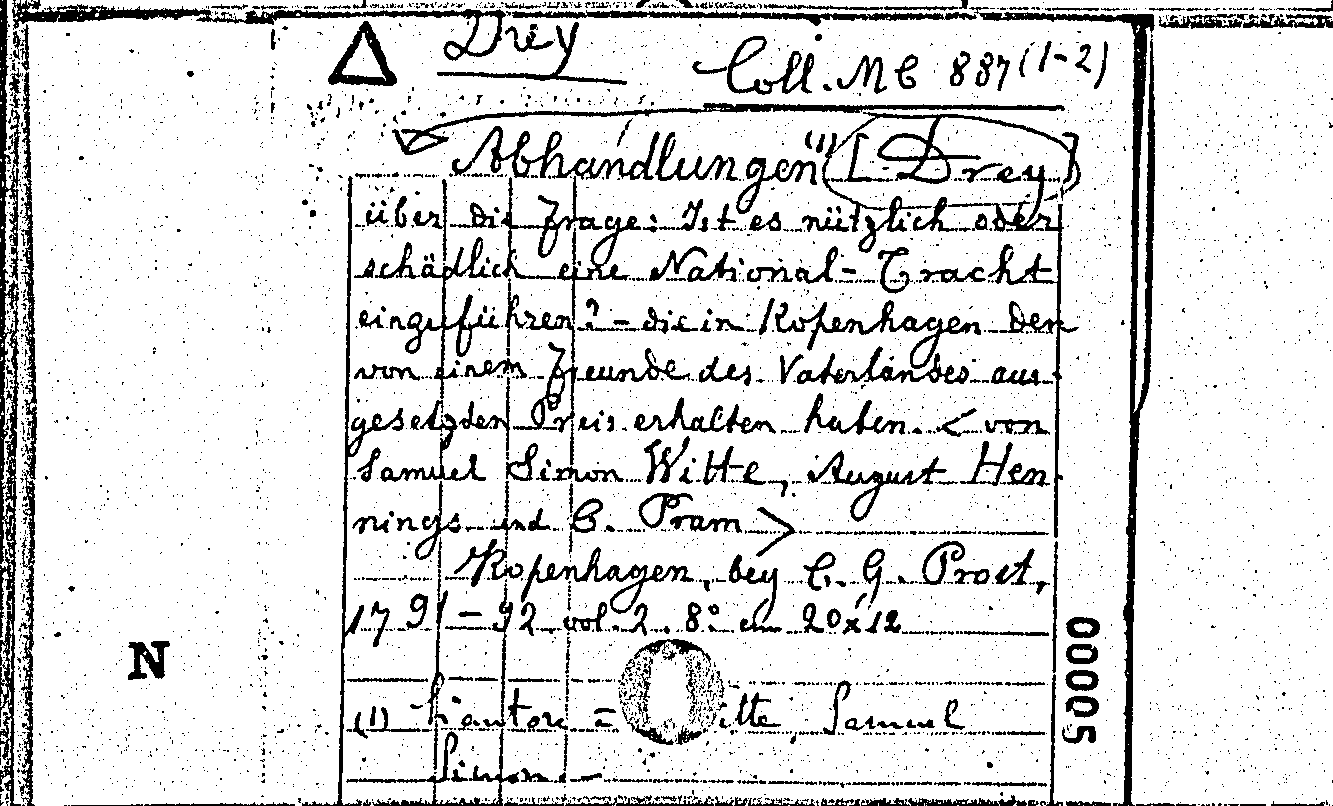 Drey
Coll. MC 887 (1-2)
Abhandlungen (1) [Drey]
über die Frage: Ist es nützlich oder
schädlich eine National-Tracht
einzuführen? - die in Kopenhagen den
von einem Freunde des Vaterlandes aus-
gesetzden Preis erhalten haben. < von
Samuel Simon Witte, August Hen-
nings und C. Pram >
Kopenhagen, bey C. G. Prost,
1791-92 vol. 2. 8° cm 20x12
(1) L'autore = itte, Samuel
Simon.-
N
00005